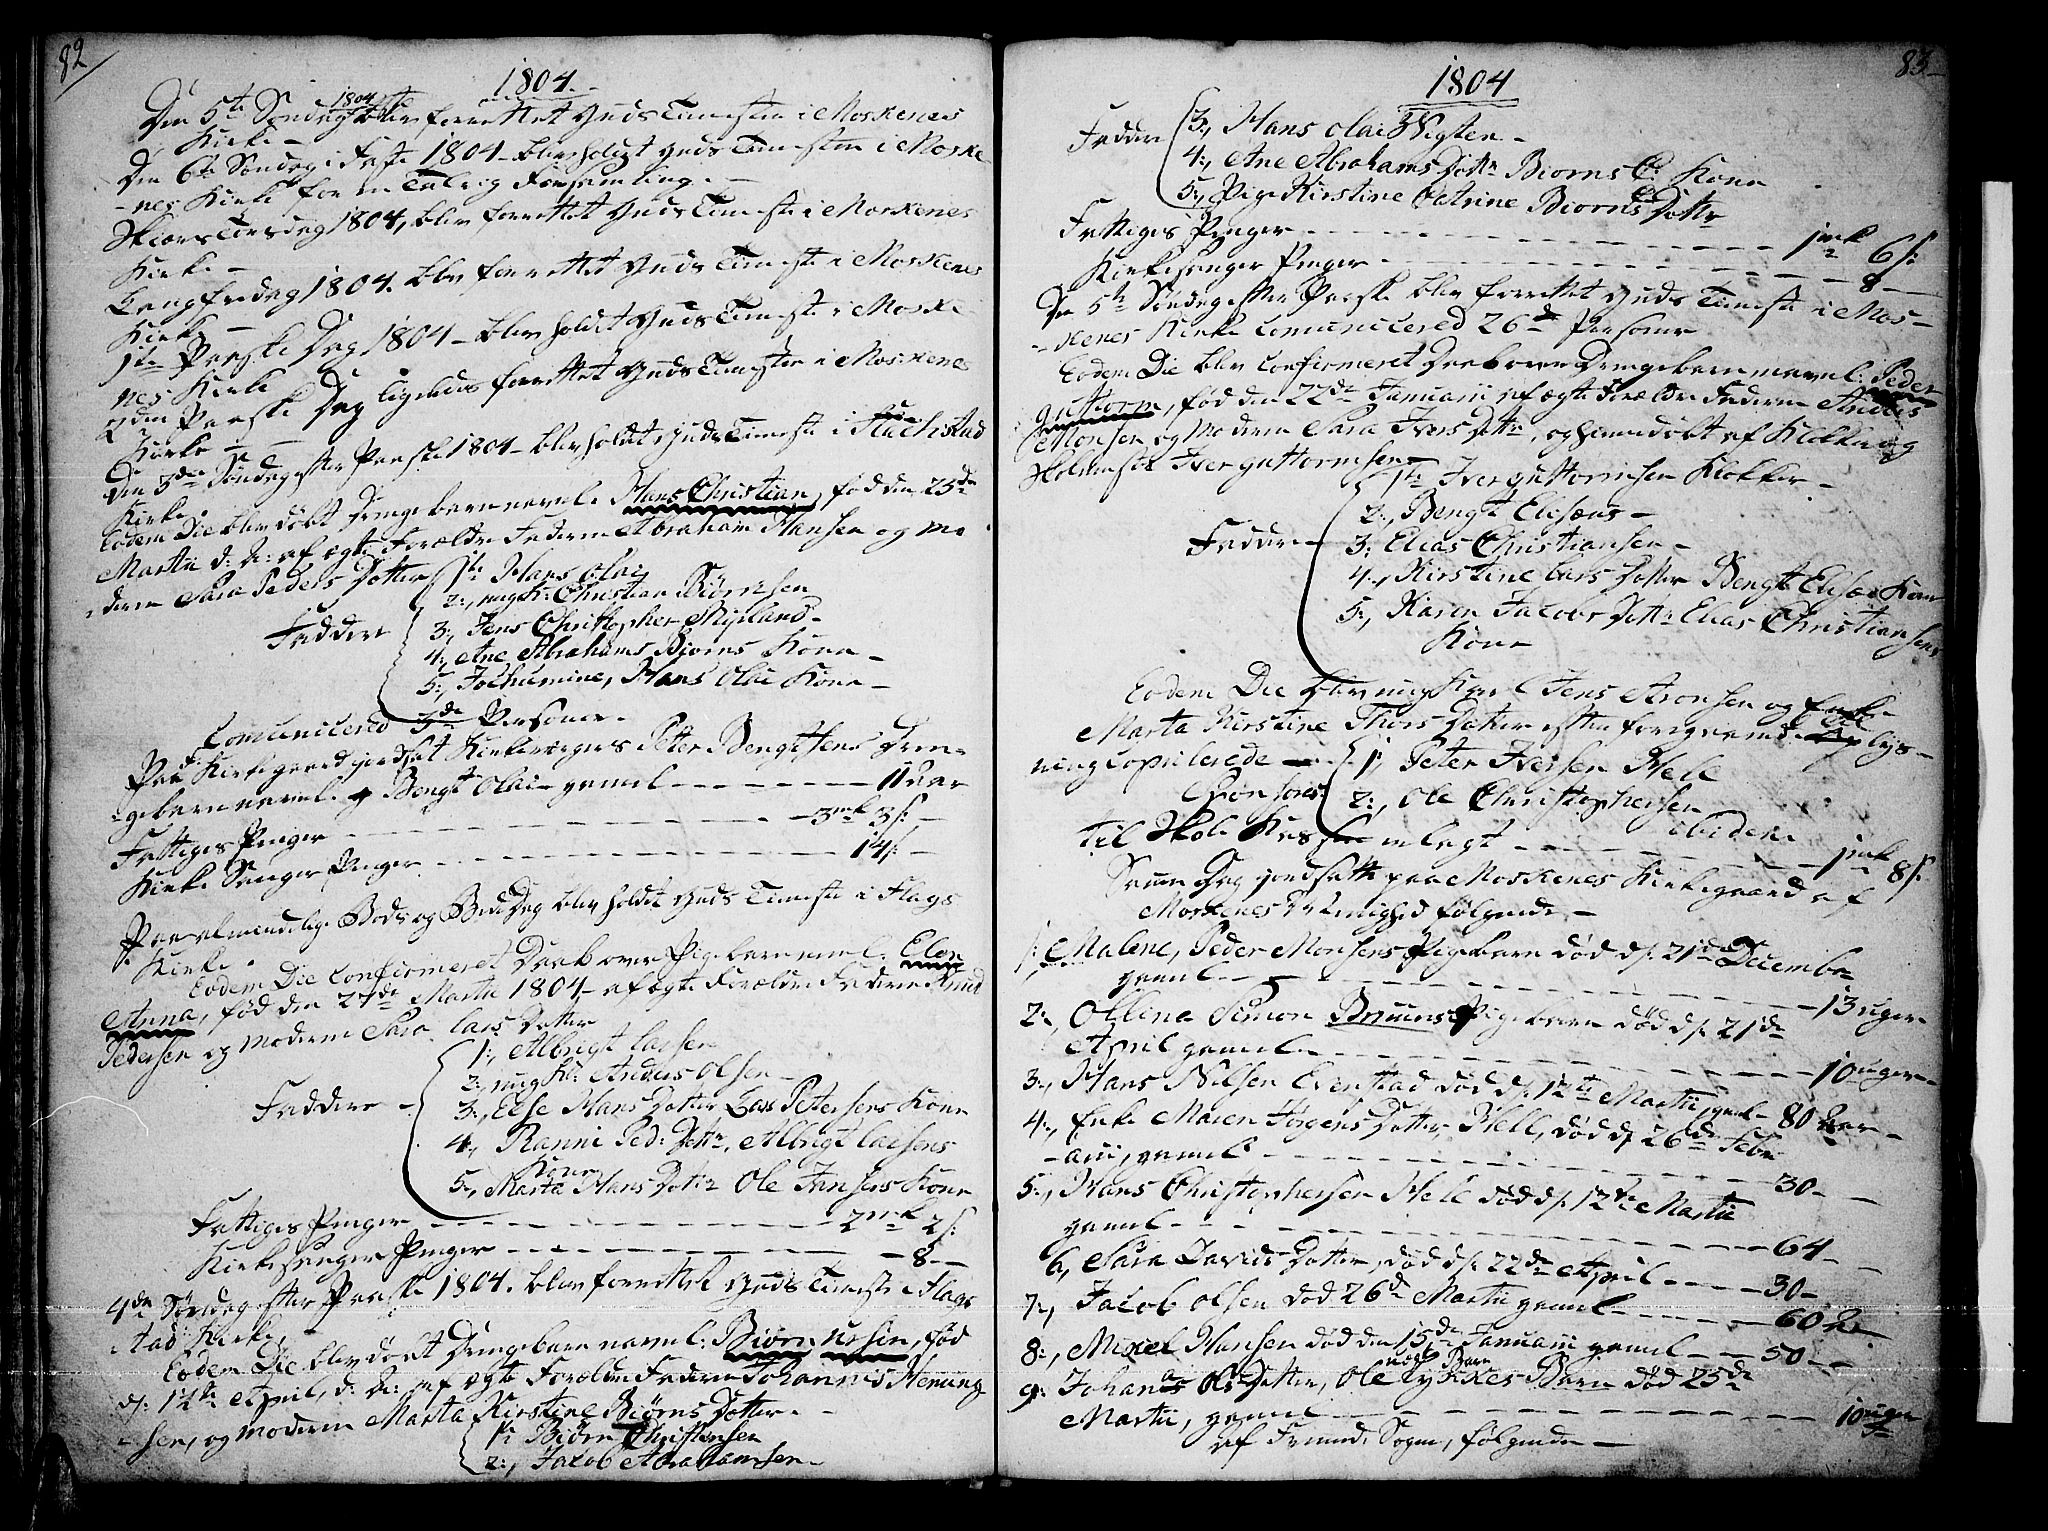 82
1804
Den 5te Søndag i Faste 1804 blev forrettet Guds Tienesten i Moskenes
Kirke
Den 6te Søndag i Faste 1804 blev holdt Guds Tienesten i Moske
nes Kirke for en Talrig Forsamling.
Skiærs Torsdag 1804, blev forrettet Guds Tieneste i Moskenes
Kirke
Langfredag 1804. blev forrettet Guds Tieneste i Moskenes
Kirke
1te Paaske Dag 1804 blev holdet Guds Tieneste i Moske
nes Kirke
2den Paaske Dag ligeledes forrettet Guds Tienesten i Moskenes
Kirke
Den 3de Søndag efter Paaske 1804 blev holdt Guds Tieneste i Flachstad
Kirke.
Eodem Die blev døbt Drengebarn navnl. Hans Christian, fød den 25de
Martii d: A: af ægte Forældre Faderen Abraham Hansen og Mo
deren Sara Peders Dotter
Faddere
1te Hans Olai
2., ung K: Christian Biørnsen
3., Jens Christopher
4., Ane Abrahams Biørns Kone
5., Jochumine, Hans Olai Kone
Comunicered 3de Personer.
Paa Kirkegaard jordsat Kirkeværgers Peter Bengthsens Dren
gebarn navnl. Bengt Olai gaml 11 Aar
Fattiges Penger 3mk 3s:
Kirke Sanger Penger 14s:
Paa almindelig Bods og Bede Dag blev holdt Guds Tieneste i Flags
Kirke.
Eodem Die Confirmeret Daab over Pigebarn navnl: Elen
Anna, fød den 27de Martii 1804 af ægte Forældre Faderen Knud
Pedersen og Moderen Sara Lars Dotter
Faddere
1:, Albrigt Larsen
2:, ung K: Anders Olsen
3:, Else Hans Dotter Lars Petersens Kone
4:, Ranni Ped: Dotr, Albrigt Larsens
Kone
5:, Marta Hans Dotr Ole Jensens Kone
Fattiges Penger 2mk 2s:
Kirkesanger Penger 8
4de Søndag efter Paaske 1804. blev forrettet Guds Tieneste i Flags
tad Kirke
Eodem Die blev døbt Drengebarn navnl: Biørn Ursin, fød
d: 12te April, d: A: af ægte Forældre Faderen Johannes Hening
sen, og Moderen Marta Kirstine Biørns Dotter
1: Biørn Christensen
2:, Jacob Abrahamsen
83
1804
Faddere
3., Hans Olai Wigten
4., Ane Abrahams Dottr Biørns C: Kone
5., Pige Kirstine Catrine Biørns Dottr
Fattiges Penger 1mk 6s:
Kirkesanger Penger 8
Den 5te Søndag efter Paaske blev forrettet Guds Tieneste i Mos
kenes Kirke Comunicered 26de Personer
Eodem Die blev Confirmeret Daab over Drengebarn navnl: Peder
Guttorm, fød den 22de Januarii af ægte Forældre Faderen Anders
Monsen og Moderen Sara Ivers Dottr, og hiemedøbt af Klokker og
Skolemester Iver Guttormsen
Faddere
1te Iver Guttormsen Klokker
2., Bengt Elisæus
3., Elias Christiansen
4., Kirstine Lars Dotter Bengt Elisæi Kone
5., Karen Jacobs Dottr Elias Christiansens
Kone
Eodem Die blev ung Karl Jens Aronsen og Enke
Marta Kirstine Thors Dotter efter foregaaende Lys
ning Copulerede
Sponsores
1:, Peter Iversen Hell
2:, Ole Christophersen
ibidem
Til Skole Kassen indlagt 1mk 8s:
Samme Dag jordsatte paa Moskenes Kirkegaard af
Moskenes Almighed følgende
1: Malene, Peder Monsens Pigebarn død d: 21de Decembr
gaml 13 uger
2:, Ollina Simon Bruuns Pigebarn død d: 21de
April gaml 10 uger
3:, Hans Nilsen Evenstad død d: 12te Martii, gaml 80 Aar
4:, Enke Maren Jørgens Dotter Hell, død d: 26de Febru
arii, gaml 30
5:, Hans Christophersen Hell død d: 12te Martii
gaml 64
6, Sara Davids Dotter, død d: 22de April 30
7:, Jacob Olsen død 26de Martii gaml 60 Aar
8:, Mikel Hansen død den 15de Januarii gaml 50
9: Johana Ols Dotter, Ole Lyckes Barn død 25de
Martii, gaml 10 uger
af Fremmede Sogne, følgende